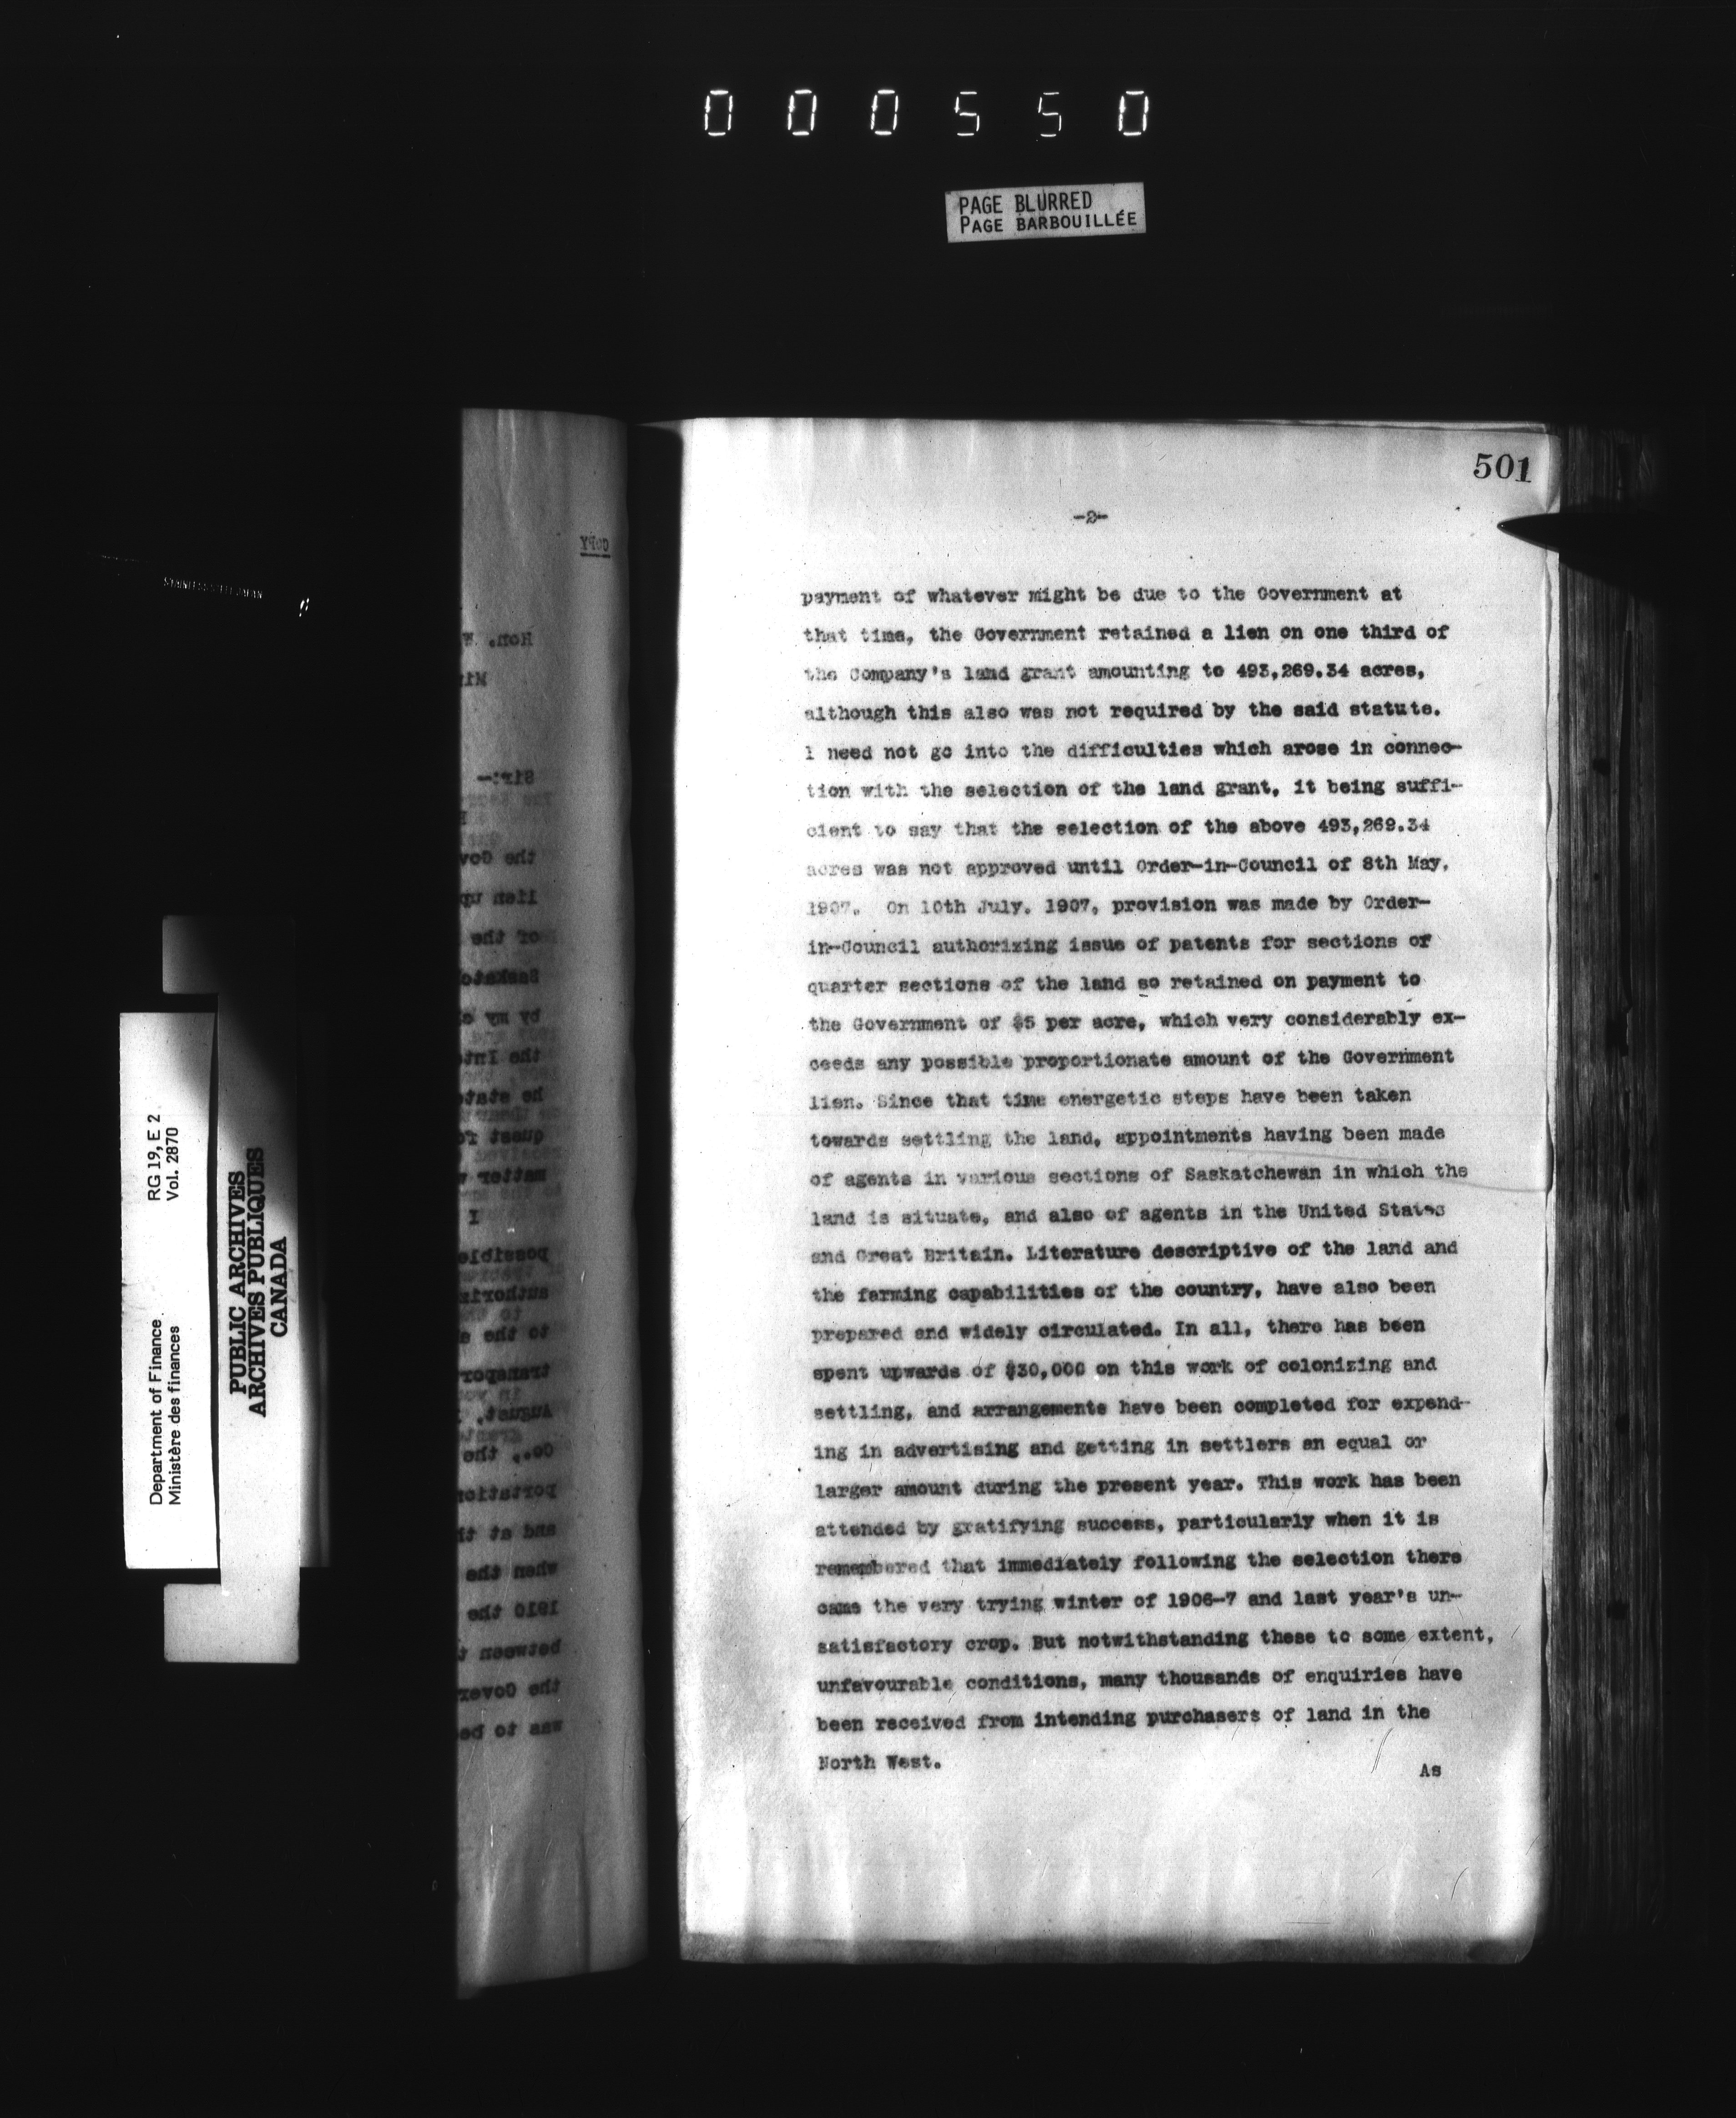 000550
PAGE BLURRED
PAGE BARBOUILLÉE
501
-2-
payment of whatever might be due to the Government at
that time, the Government retained a lien on one third of
the Company's land grant amounting to 493,269.34 acres,
although this also was not required by the said statute.
I need not go into the difficulties which arose in connec-
tion with the selection of the land grant, it being suffi-
cient to say that the selection of the above 493,269.34
acres was not approved until Order-in-Council of 8th May,
1907. On 10th July. 1907, provision was made by Order-
in-Council authorizing issue of patents for sections or
quarter sections of the land so retained on payment to
the Government of $5 per acre, which very considerably ex-
ceeds any possible proportionate amount of the Government
lien. Since that time energetic steps have been taken
towards settling the land, appointments having been made
of agents in various sections of Saskatchewan in which the
land is situate, and also of agents in the United States
and Great Britain. Literature descriptive of the land and
the farming capabilities of the country, have also been
prepared and widely circulated. In all, there has been
spent upwards of $30,000 on this work of colonizing and
settling, and arrangements have been completed for expend-
ing in advertising and getting in settlers an equal or
larger amount during the present year. This work has been
attended by gratifying success, particularly when it is
remembered that immediately following the selection there
came the very trying winter of 1906-7 and last year's un-
satisfactory crop. But notwithstanding these to some extent,
unfavourable conditions, many thousands of enquiries have
been received from intending purchasers of land in the
North West.
As
COPY
Hon. W
Mi
Sir:-
the Gov
lien up
of the
Saskato
by my
the Inte
he state
quest fo
matter
I
possible
authoriz
to the
transpor
August,
Co., the
portation
and at th
when the
1910 the
between t
the Gover
was to be
Department of Finance
Ministère des finances
RG 19, E 2
Vol. 2870
PUBLIC ARCHIVES
ARCHIVES PUBLIQUES
CANADA